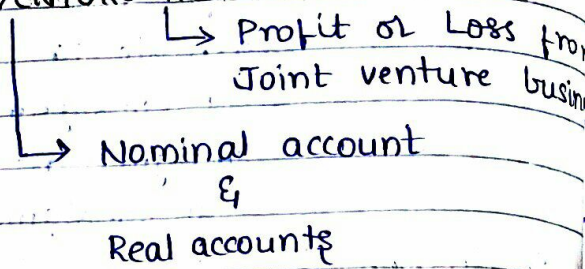 Profit or Loss from
Joint venture
Nominal account
&
Real accounts